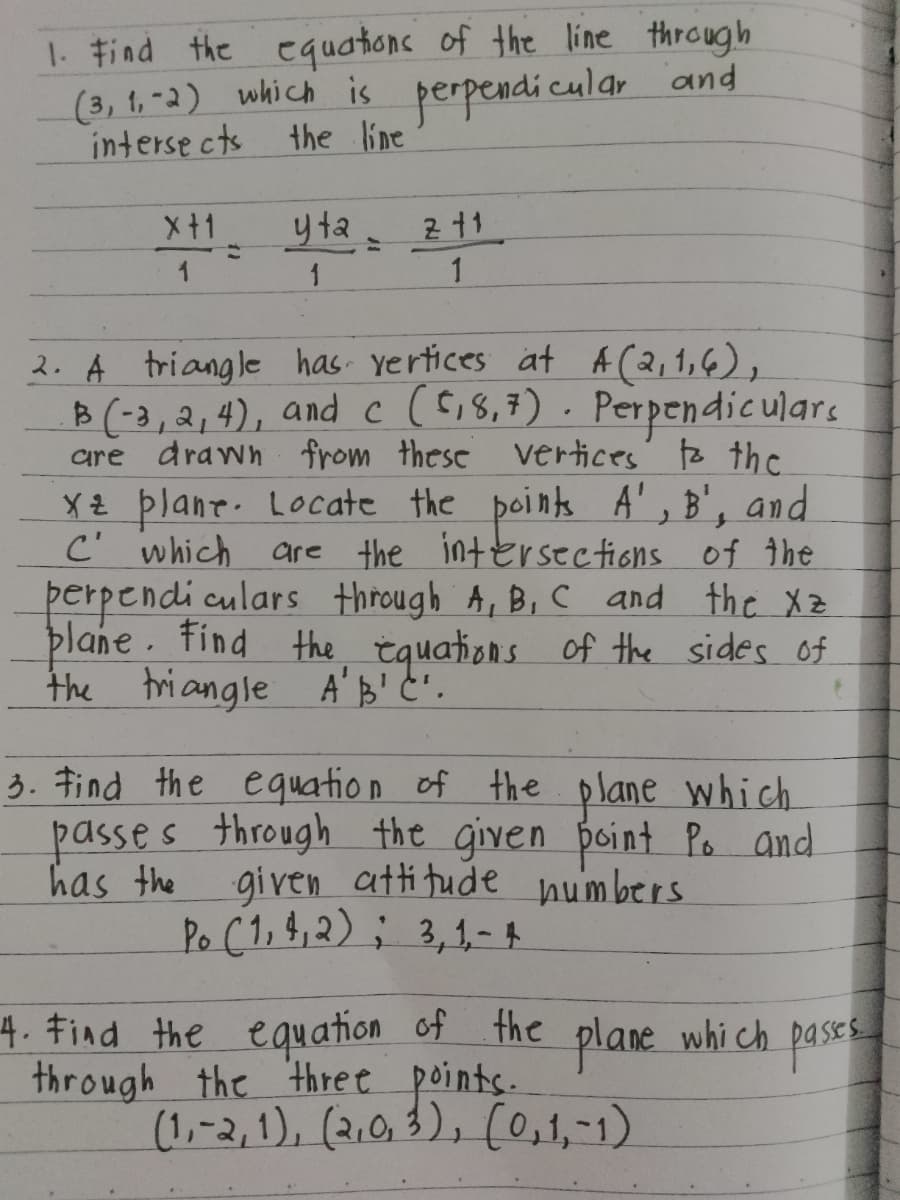 1. Find the equations of the line through
(3, 1, -2) which is perpendicular and
intersects the line
x+1 / 1 = y+2 / 1 = z+1 / 1
2. A triangle has vertices at A(2,1,6),
B(-3,2,4), and C (5,8,7). Perpendiculars
are drawn from these vertices to the
xz plane. Locate the points A', B', and
C' which are the intersections of the
perpendiculars through A, B, C and the xz
plane. Find the equations of the sides of
the triangle A'B'C'.
3. Find the equation of the plane which
passes through the given point P₀ and
has the given attitude numbers
P₀ (1,4,2); 3,1,-4
4. Find the equation of the plane which passes
through the three points.
(1,-2,1), (2,0,3), (0,1,-1)